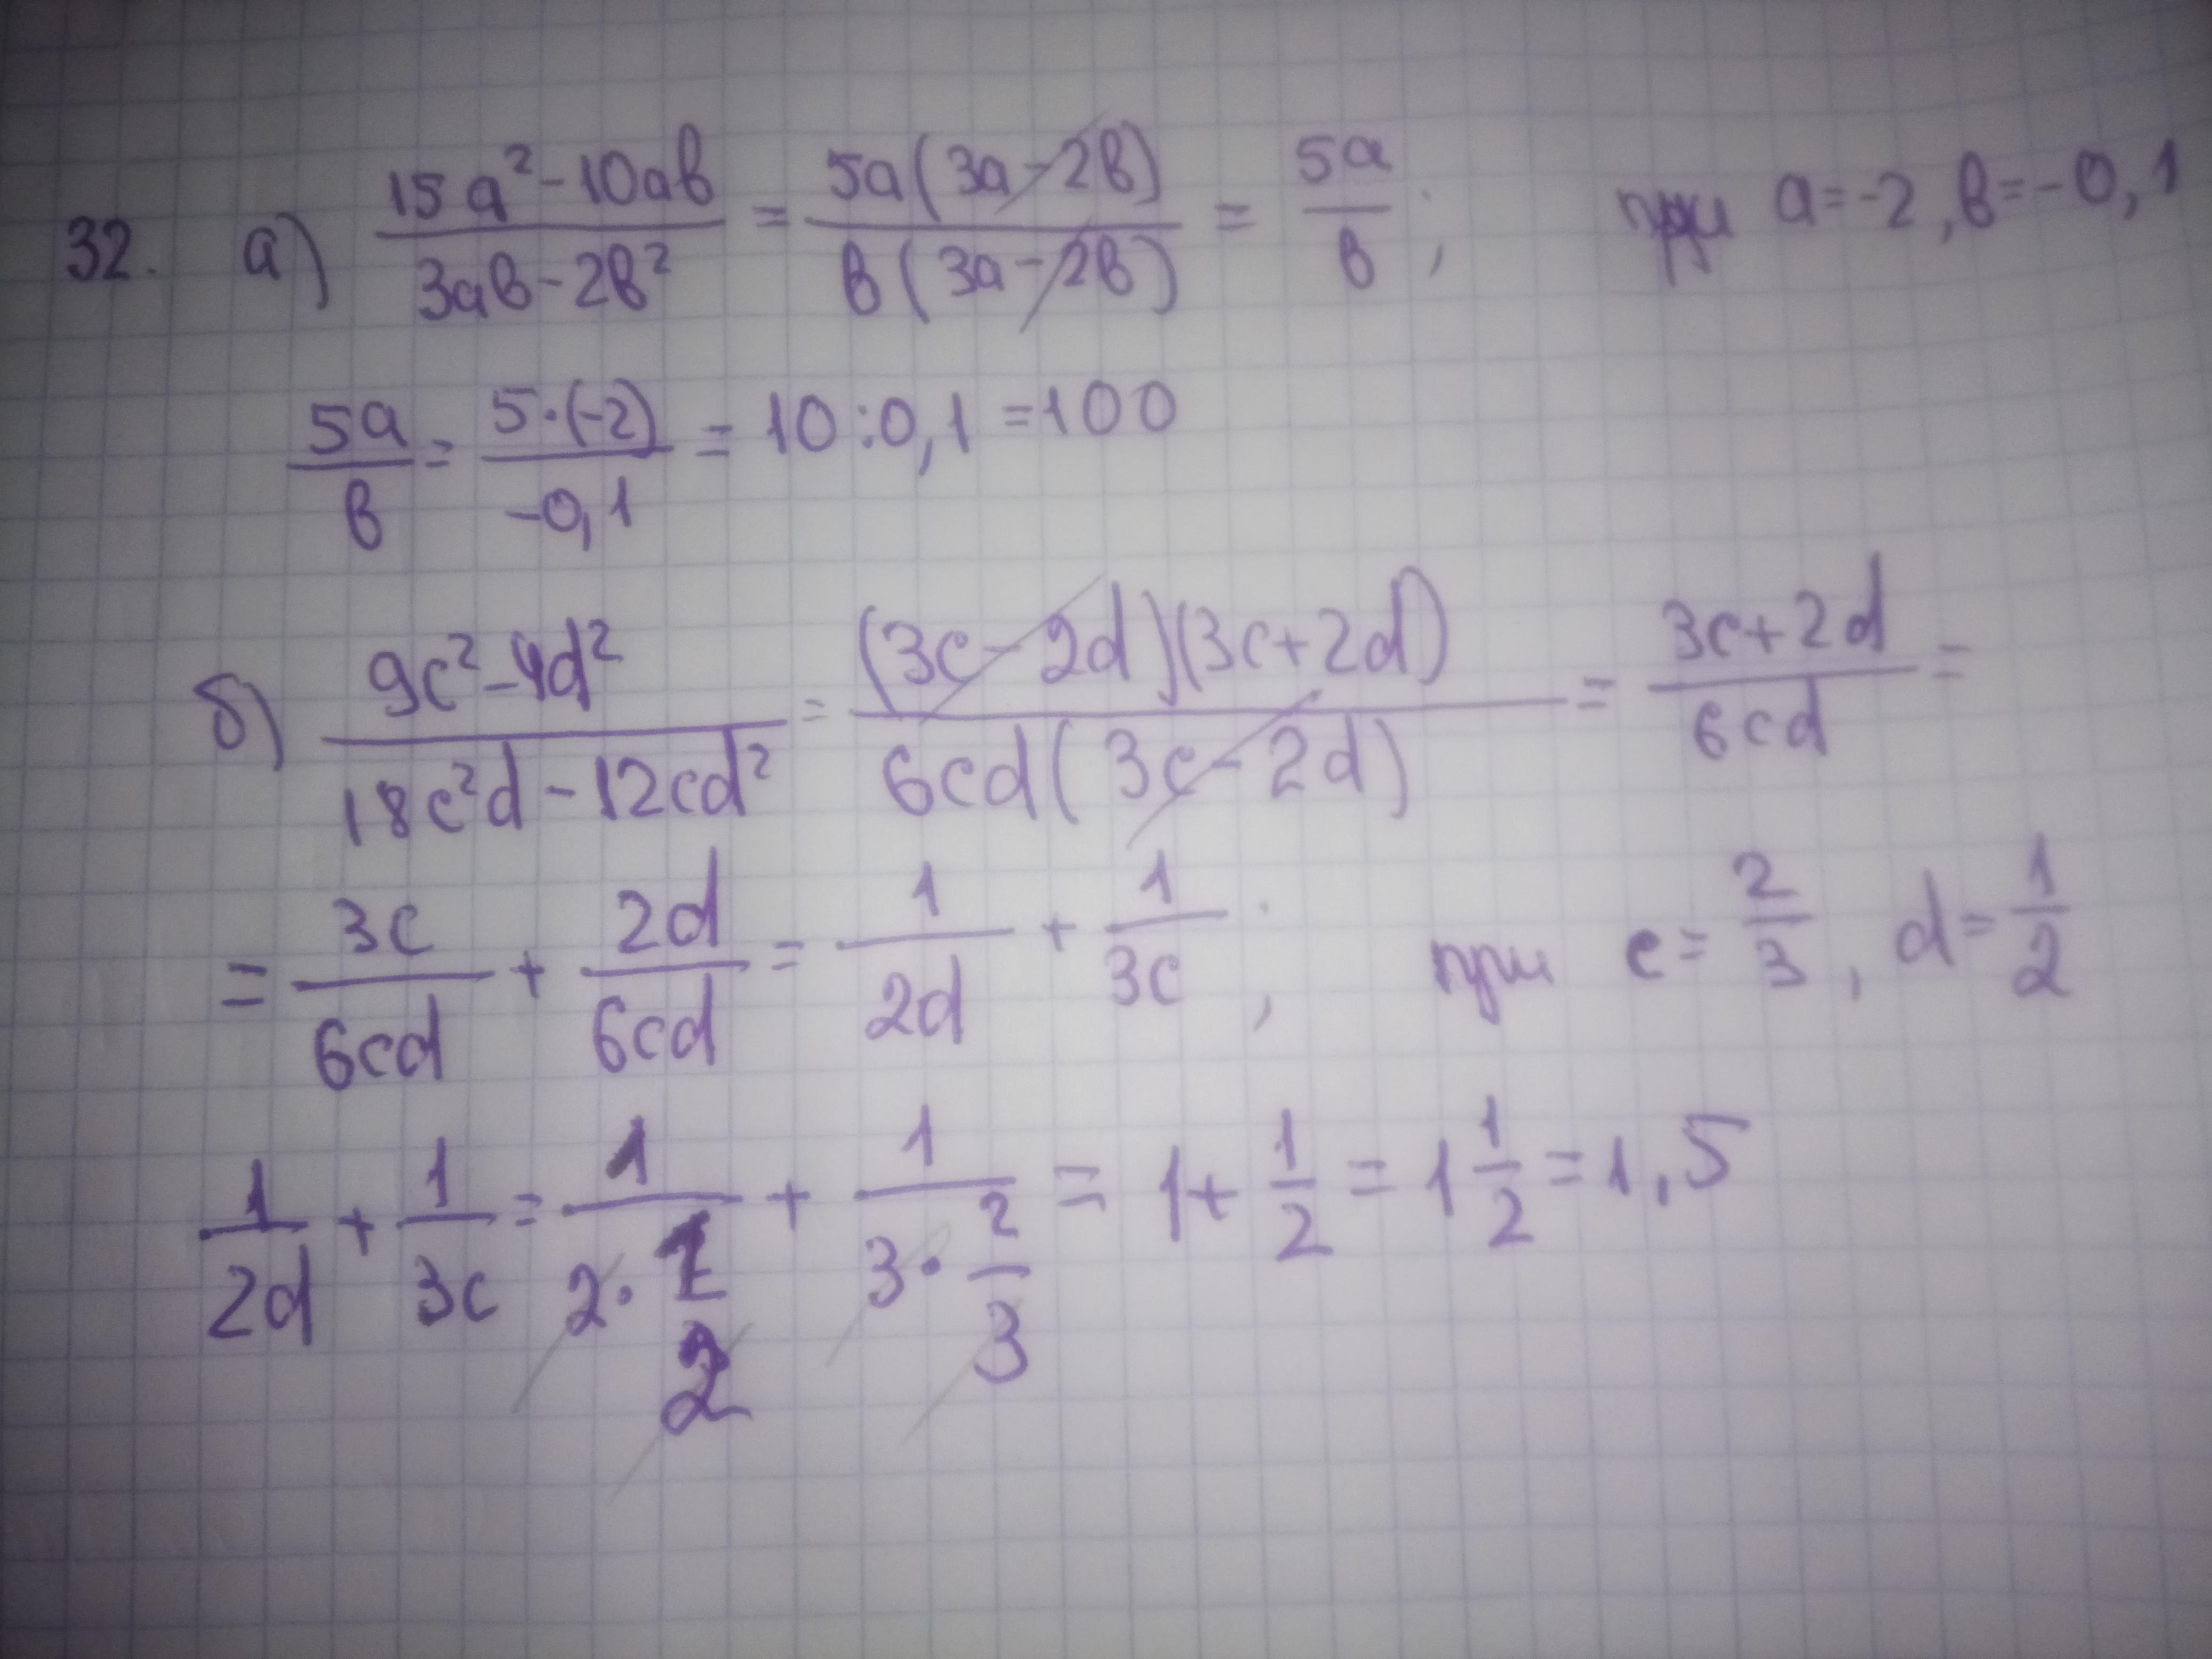 32. а) (15a² - 10ab)/(3ab - 2b²) = 5a(3a - 2b)/b(3a - 2b) = 5a/b ; при a = -2, b = -0,1
5a/b = 5·(-2)/-0,1 = 10 : 0,1 = 100
б) (9c² - 4d²)/(18c²d - 12cd²) = (3c - 2d)(3c + 2d)/6cd(3c - 2d) = (3c + 2d)/6cd =
= 3c/6cd + 2d/6cd = 1/2d + 1/3c ; при c = 2/3, d = 1/2
1/2d + 1/3c = 1/(2·1/2) + 1/(3·2/3) = 1 + 1/2 = 1 1/2 = 1,5